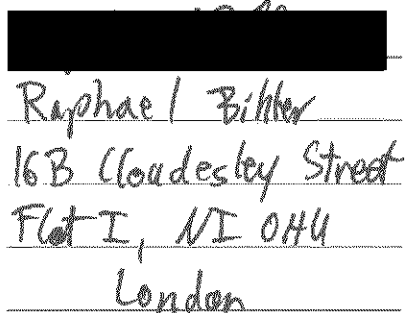 Raphael Bihler
16B Cloudesley Street
Flat I, NI 0HU
London